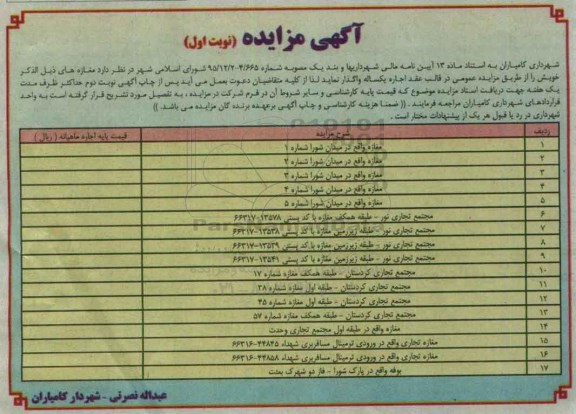 آگهی مزایده (نوبت اول)
شهرداری کامیاران به استناد ماده ۱۳ آیین نامه مالی شهرداریها و بند یک مصوبه شماره ۹۵/۱۲/۲-۴/۶۶۵ شورای اسلامی شهر در نظر دارد مغازه های ذیل الذکر
خویش را از طریق مزایده عمومی در قالب عقد اجاره یکساله واگذار نماید لذا از کلیه متقاضیان دعوت بعمل می آید پس از چاپ آگهی نوبت دوم حداکثر ظرف مدت
یک هفته جهت دریافت اسناد مزایده موضوع که قیمت پایه کارشناسی و سایر شروط آن در فرم شرکت در مزایده ، به تفصیل مورد تشریح قرار گرفته است به واحد
قراردادهای شهرداری کامیاران مراجعه فرمایند . (( ضمنا هزینه کارشناسی و چاپ آگهی برعهده برنده گان مزایده می باشد. ))
شهرداری در رد یا قبول هر یک از پیشنهادات مختار است .
ردیف شرح مزایده قیمت پایه اجاره ماهیانه ( ریال )
۱ مغازه واقع در میدان شورا شماره ۱
۲ مغازه واقع در میدان شورا شماره ۲
۳ مغازه واقع در میدان شورا شماره ۳
۴ مغازه واقع در میدان شورا شماره ۴
۵ مغازه واقع در میدان شورا شماره ۵
۶ مجتمع تجاری نور - طبقه همکف مغازه با کد پستی ۱۳۵۷۸-۶۶۳۱۷
۷ مجتمع تجاری نور - طبقه زیرزمین مغازه با کد پستی ۱۳۵۳۸-۶۶۳۱۷
۸ مجتمع تجاری نور - طبقه زیرزمین مغازه با کد پستی ۱۳۵۳۹-۶۶۳۱۷
۹ مجتمع تجاری نور - طبقه زیرزمین مغازه با کد پستی ۱۳۵۴۱-۶۶۳۱۷
۱۰ مجتمع تجاری کردستان - طبقه همکف مغازه شماره ۱۷
۱۱ مجتمع تجاری کردستان - طبقه اول مغازه شماره ۳۸
۱۲ مجتمع تجاری کردستان - طبقه اول مغازه شماره ۴۵
۱۳ مجتمع تجاری کردستان - طبقه همکف مغازه شماره ۵۷
۱۴ مغازه واقع در طبقه اول مجتمع تجاری وحدت
۱۵ مغازه تجاری واقع در ورودی ترمینال مسافربری شهداء ۴۴۸۴۵-۶۶۳۱۶
۱۶ مغازه تجاری واقع در ورودی ترمینال مسافربری شهداء ۴۴۸۵۸-۶۶۳۱۶
۱۷ بوفه واقع در پارک شورا - فاز دو شهرک بعثت
عبداله نصرتی - شهردار کامیاران